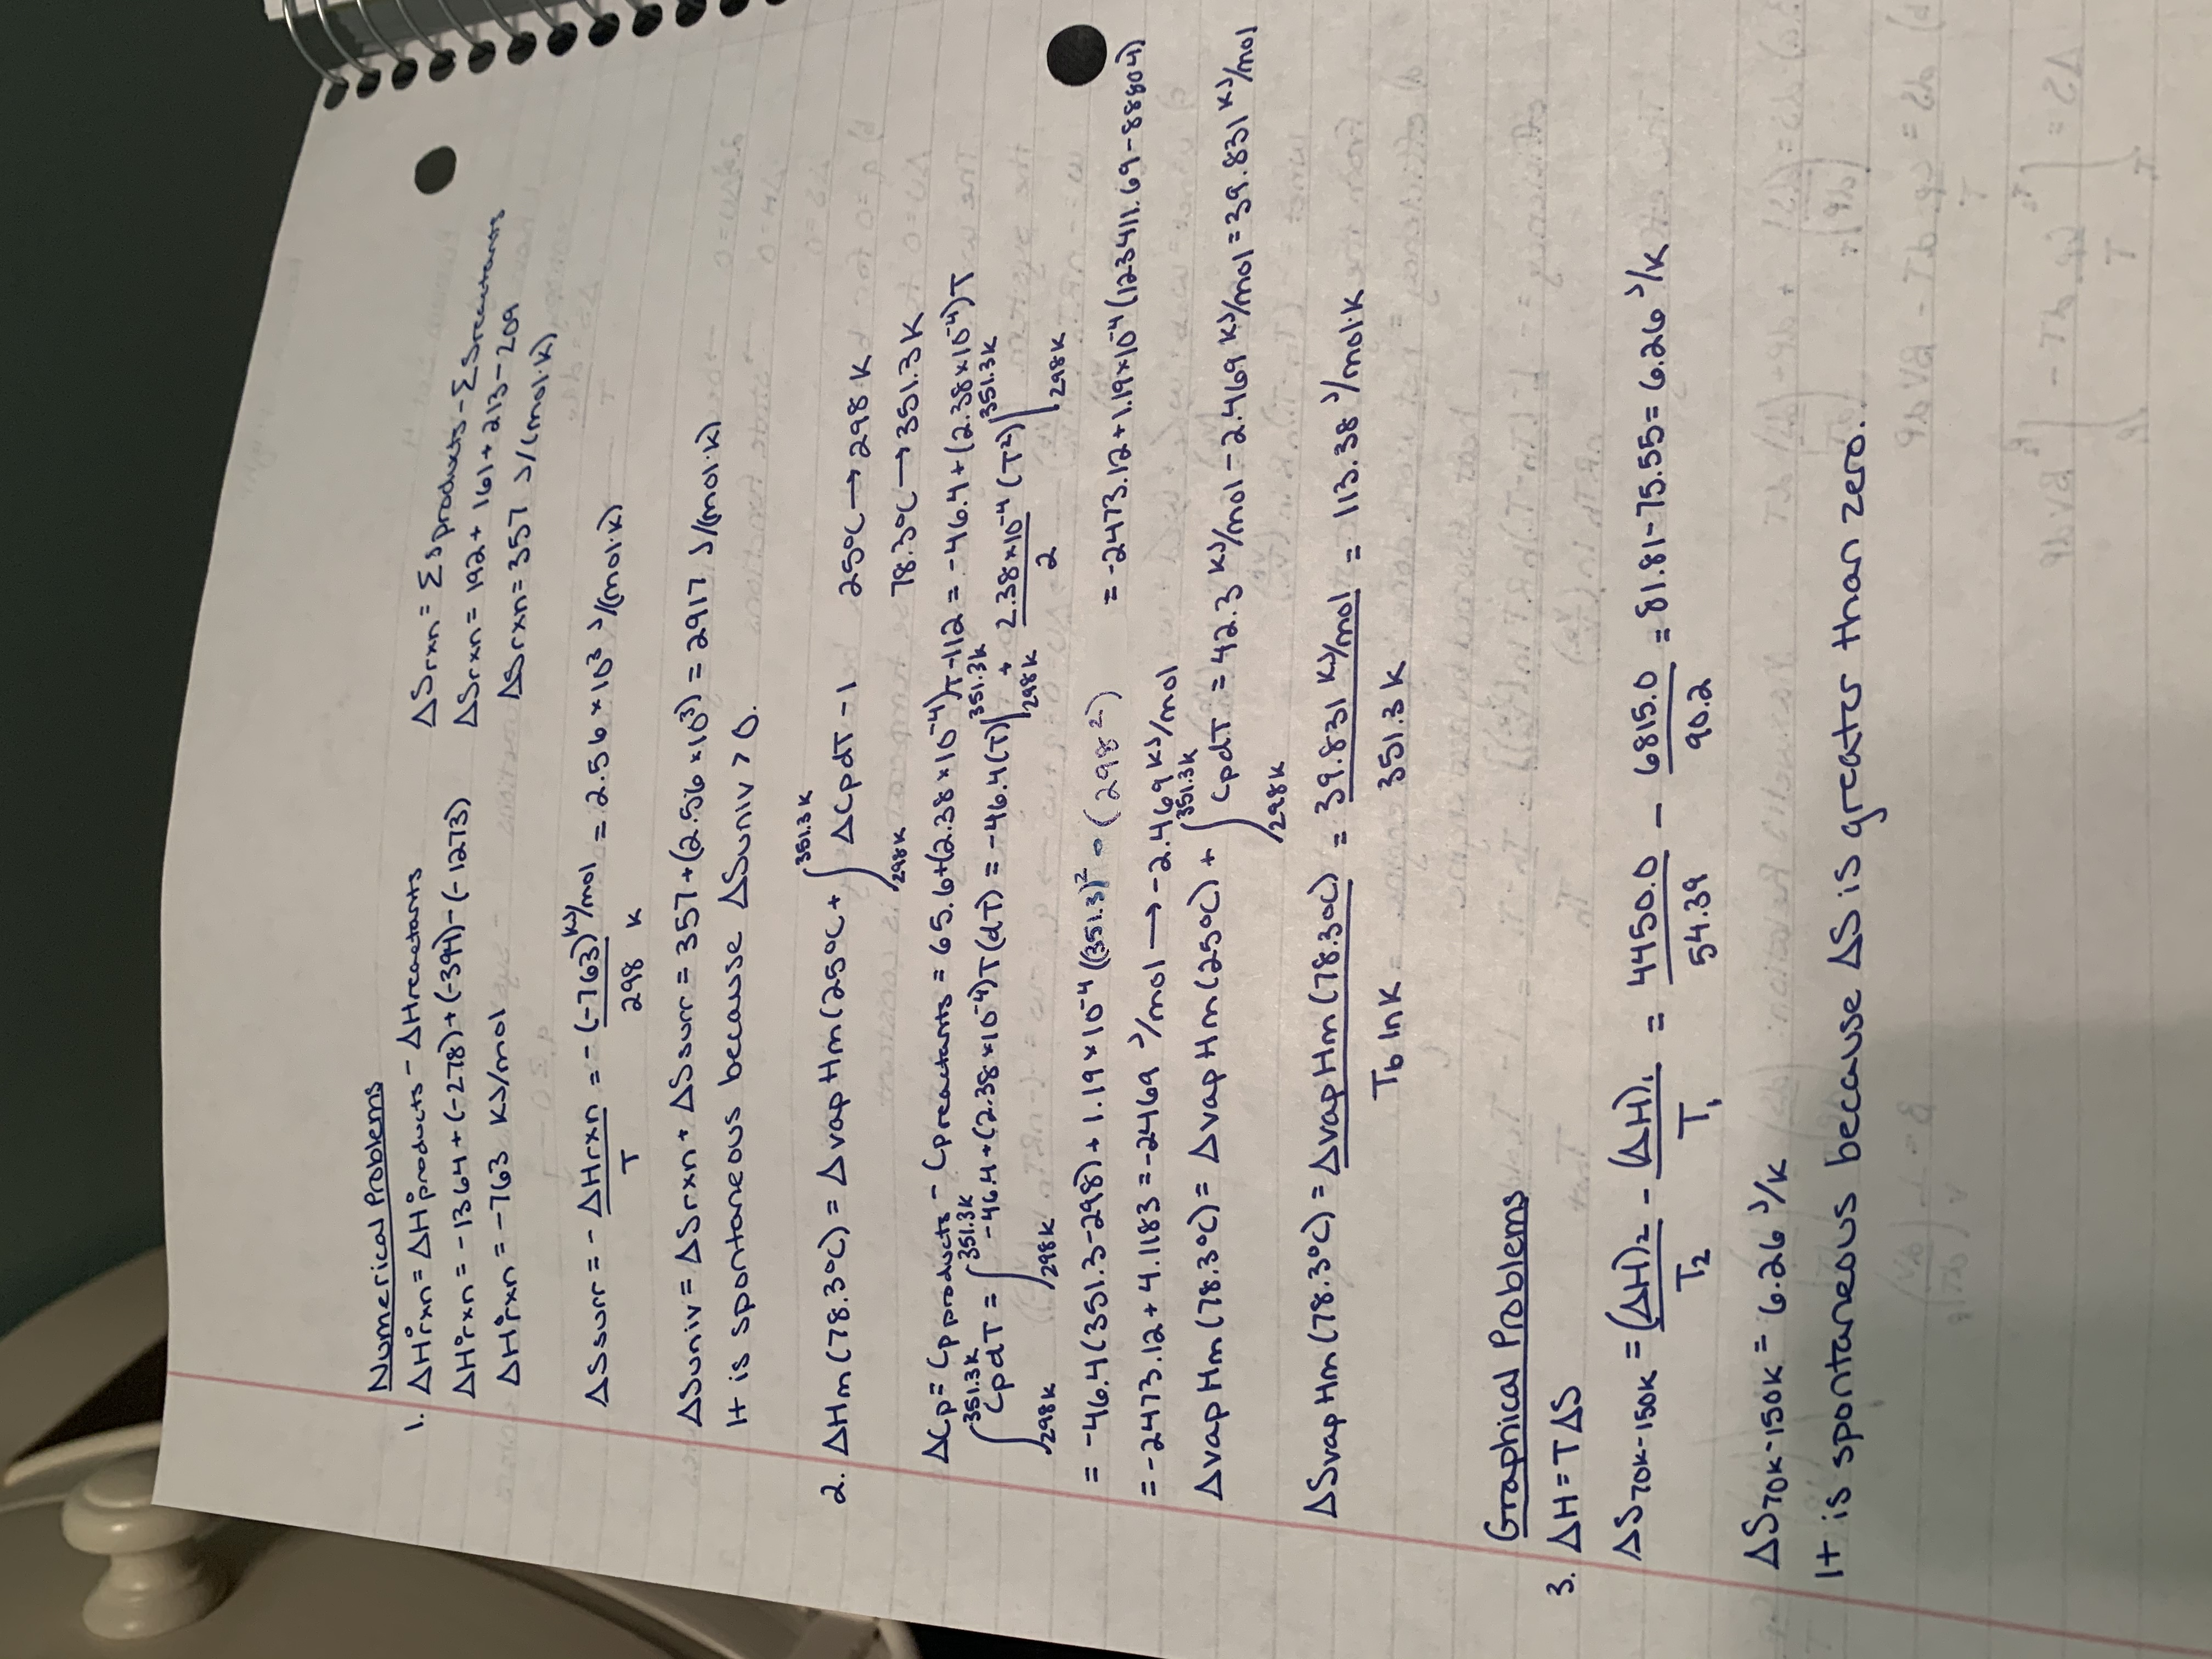 Numerical Problems
1. ΔH°rxn = ΔH°products - ΔHreactants
ΔH°rxn = -1364 + (-278) + (-394) - (-1273)
ΔH°rxn = -763 KJ/mol
ΔSrxn = ΣSproducts - ΣSreactants
ΔSrxn = 192 + 161 + 213 - 209
ΔSrxn = 357 J/(mol·K)
ΔSsurr = - ΔHrxn/T = - (-763) KJ/mol / 298 K = 2.56 × 10³ J/(mol·K)
ΔSuniv = ΔSrxn + ΔSsurr = 357 + (2.56 × 10³) = 2917 J/(mol·K)
It is spontaneous because ΔSuniv > 0.
2. ΔHm (78.3°C) = ΔvapHm (25°C + ∫298K^351.3K ΔCpdT - 1
25°C → 298 K
78.3°C → 351.3 K
ΔCp = Cp products - Cp reactants = 65.6 + (2.38 × 10⁻⁴)T - 112 = -46.4 + (2.38 × 10⁻⁴)T
∫298K^351.3K CpdT = ∫298K^351.3K -46.4 + (2.38 × 10⁻⁴)T(dT) = -46.4(T)|298K^351.3K + 2.38 × 10⁻⁴/2 (T²)|298K^351.3K
= -46.4(351.3 - 298) + 1.19 × 10⁻⁴ ((351.3)² - (298²) = -2473.12 + 1.19 × 10⁻⁴ (123411.69 - 88804)
= -2473.12 + 4.1183 = -2469 J/mol → -2.469 KJ/mol
ΔvapHm (78.3°C) = ΔvapHm (25°C) + ∫298K^351.3K CpdT = 42.3 KJ/mol - 2.469 KJ/mol = 39.831 KJ/mol
ΔSvapHm (78.3°C) = ΔvapHm (78.3°C) / Tb in K = 39.831 KJ/mol / 351.3 K = 113.38 J/mol·K
Graphical Problems
3. ΔH = TΔS
ΔS70K-150K = (ΔH)₂/T₂ - (ΔH)₁/T₁ = 4450.0/54.39 - 6815.0/90.2 = 81.81 - 75.55 = 6.26 J/K
ΔS70K-150K = 6.26 J/K
It is spontaneous because ΔS is greater than zero.